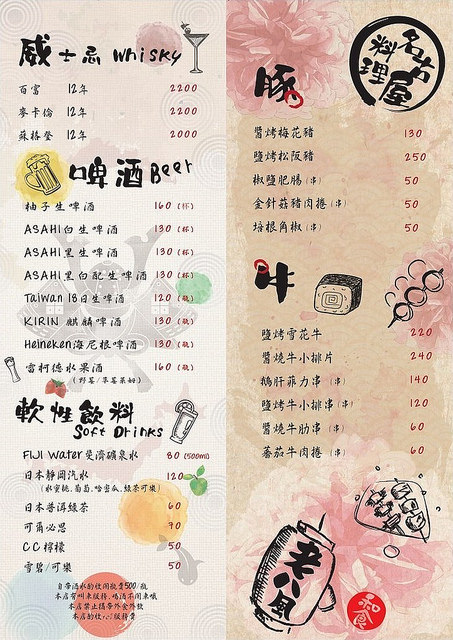 威士忌 Whisky
百富 12年 2200
麥卡倫 12年 2200
蘇格登 12年 2000
啤酒 Beer
柚子生啤酒 160 (杯)
ASAHI白生啤酒 130 (杯)
ASAHI黑生啤酒 130 (杯)
ASAHI黑白配生啤酒 130 (杯)
Taiwan 18日生啤酒 120 (瓶)
KIRIN 麒麟啤酒 130 (瓶)
Heineken海尼根啤酒 130 (瓶)
雪柯德水果酒 160 (瓶)
(野莓/草莓萊姆)
軟性飲料
Soft Drinks
FIJI Water斐濟礦泉水 80 (500ml)
日本靜岡汽水 120
(水蜜桃.葡萄.哈密瓜.綠茶可樂)
日本普洱綠茶 60
可爾必思 70
CC檸檬 50
雪碧/可樂 50
自帶酒水酌收開瓶費500/瓶
本店有叫車服務.喝酒不開車哦
本店禁止攜帶外食外飲
名古屋料理
豚
醬烤梅花豬 130
鹽烤松阪豬 250
椒鹽肥腸(串) 50
金針菇豬肉捲(串) 50
培根角椒(串) 50
牛
鹽烤雪花牛 220
醬燒牛小排片 240
鵝肝菲力串(串) 140
鹽烤牛小排串(串) 120
醬燒牛肋串(串) 60
蕃茄牛肉捲(串) 60